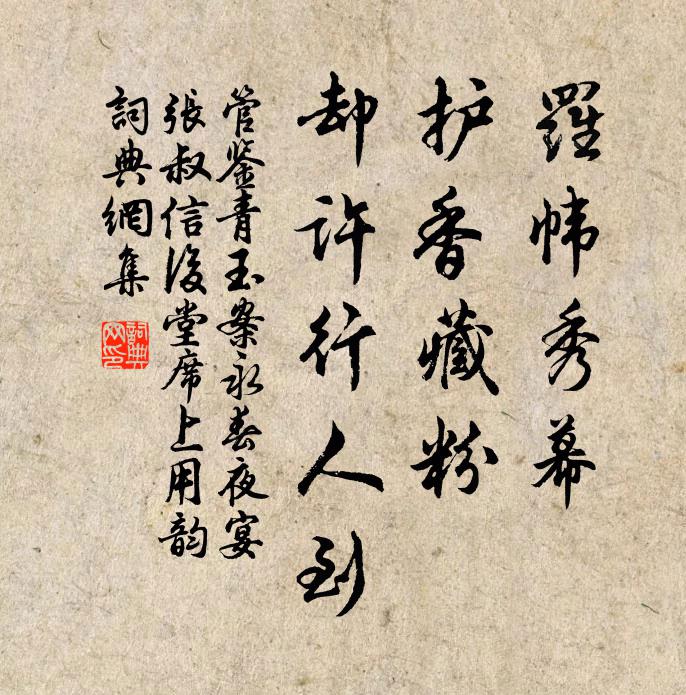 羅幃秀幕
护香藏粉
却許行人到
管鉴青玉案永春夜宴
張叔信後堂席上用韵
詞典網集
詞典
网印